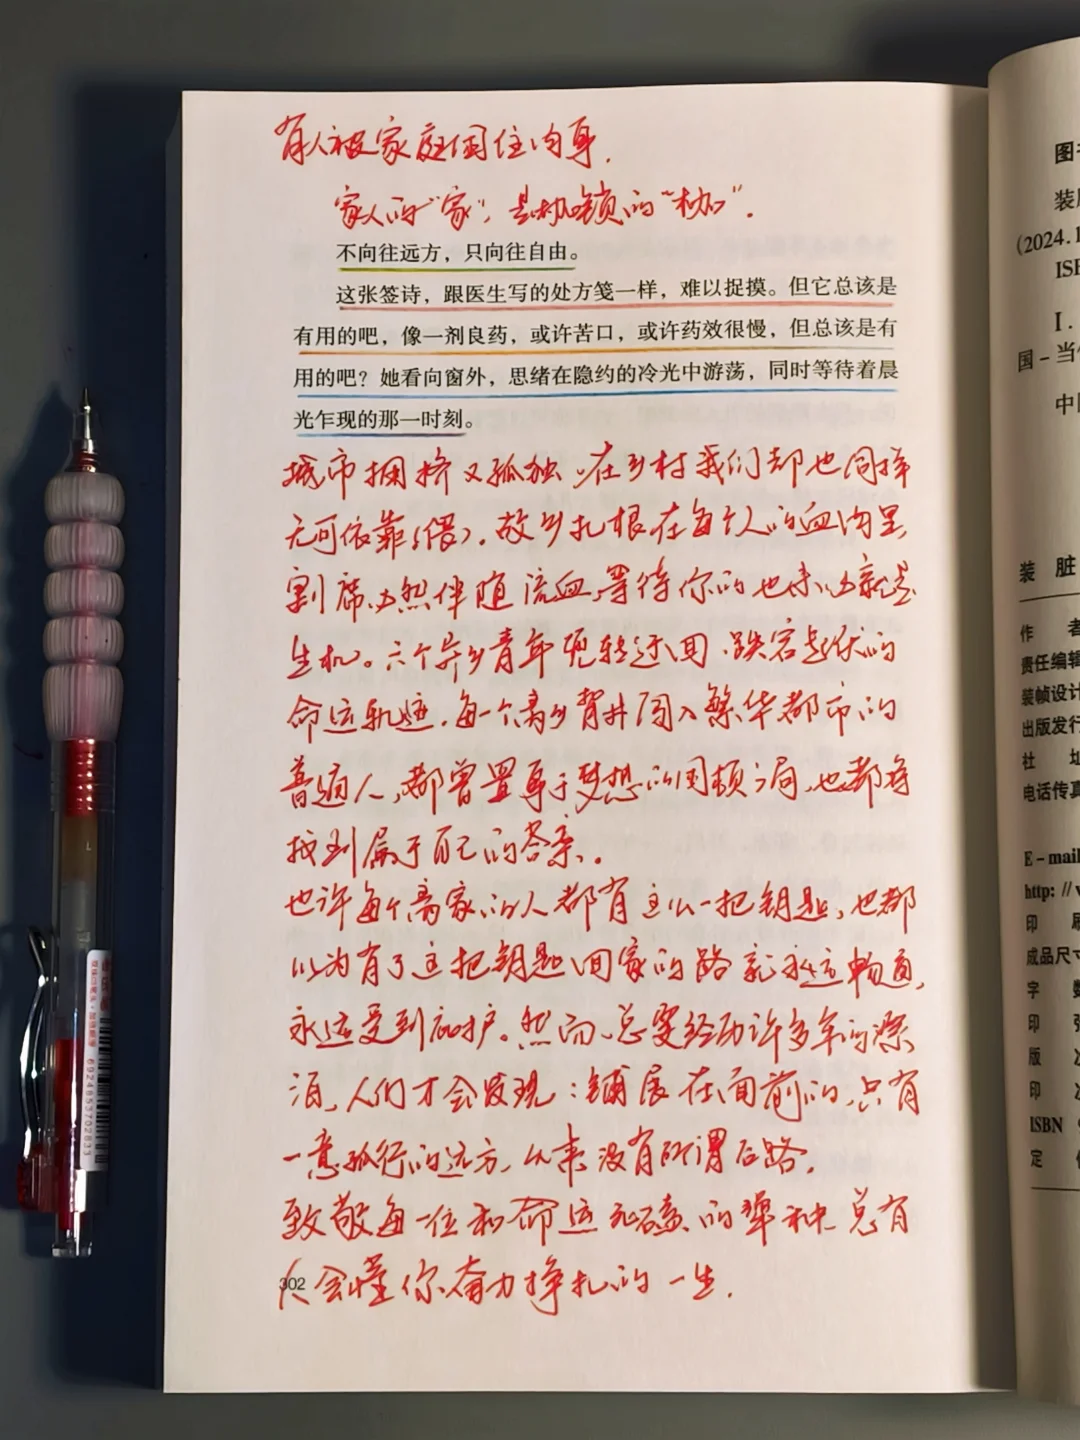 有人被家庭困住肉身.
家人的"家",是枷锁的"枷".
不向往远方，只向往自由。
这张签诗，跟医生写的处方笺一样，难以捉摸。但它总该是
有用的吧，像一剂良药，或许苦口，或许药效很慢，但总该是有
用的吧？她看向窗外，思绪在隐约的冷光中游荡，同时等待着晨
光乍现的那一时刻。
城市拥挤又孤独,在乡村我们却也同样
无可依靠(偎).故乡扎根在每个人的血肉里,
割席必然伴随流血,等待你的也未必就是
生机。六个异乡青年兜转迂回、跌宕起伏的
命运轨迹.每一个离乡背井闯入繁华都市的
普通人,都曾置身于梦想的困顿之局,也都将
找到属于自己的答案.
也许每个离家的人都有这么一把钥匙,也都
以为有了这把钥匙回家的路就永远畅通,
永远受到庇护。然而,总要经历许多年的漂
泊,人们才会发现:铺展在面前的,只有
一意孤行的远方,从来没有所谓后路.
致敬每一位和命运死磕的犟种 总有
人会懂你奋力挣扎的一生.
302
图书
装脏
(2024.1
ISB
I.
国-当代
中国
装 脏
作 者
责任编辑
装帧设计
出版发行
社 址
电话传真
E-mail
http://w
印 刷
成品尺寸
字 数
印 张
版 次
印 次
ISBN
定 价
6924853702833